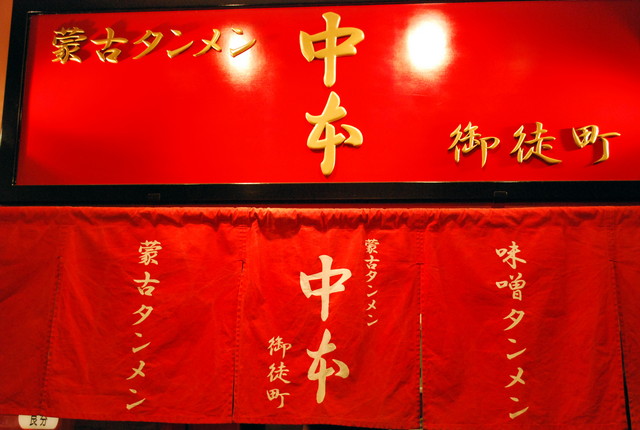 蒙古タンメン
中本
御徒町
蒙古タンメン
蒙古タンメン
中本
御徒町
味噌タンメン
良分